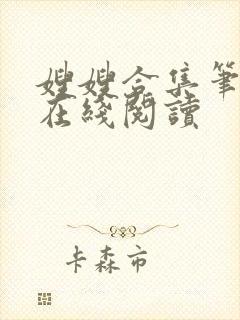 嫂嫂合集筆
在綫閱讀
卡森市